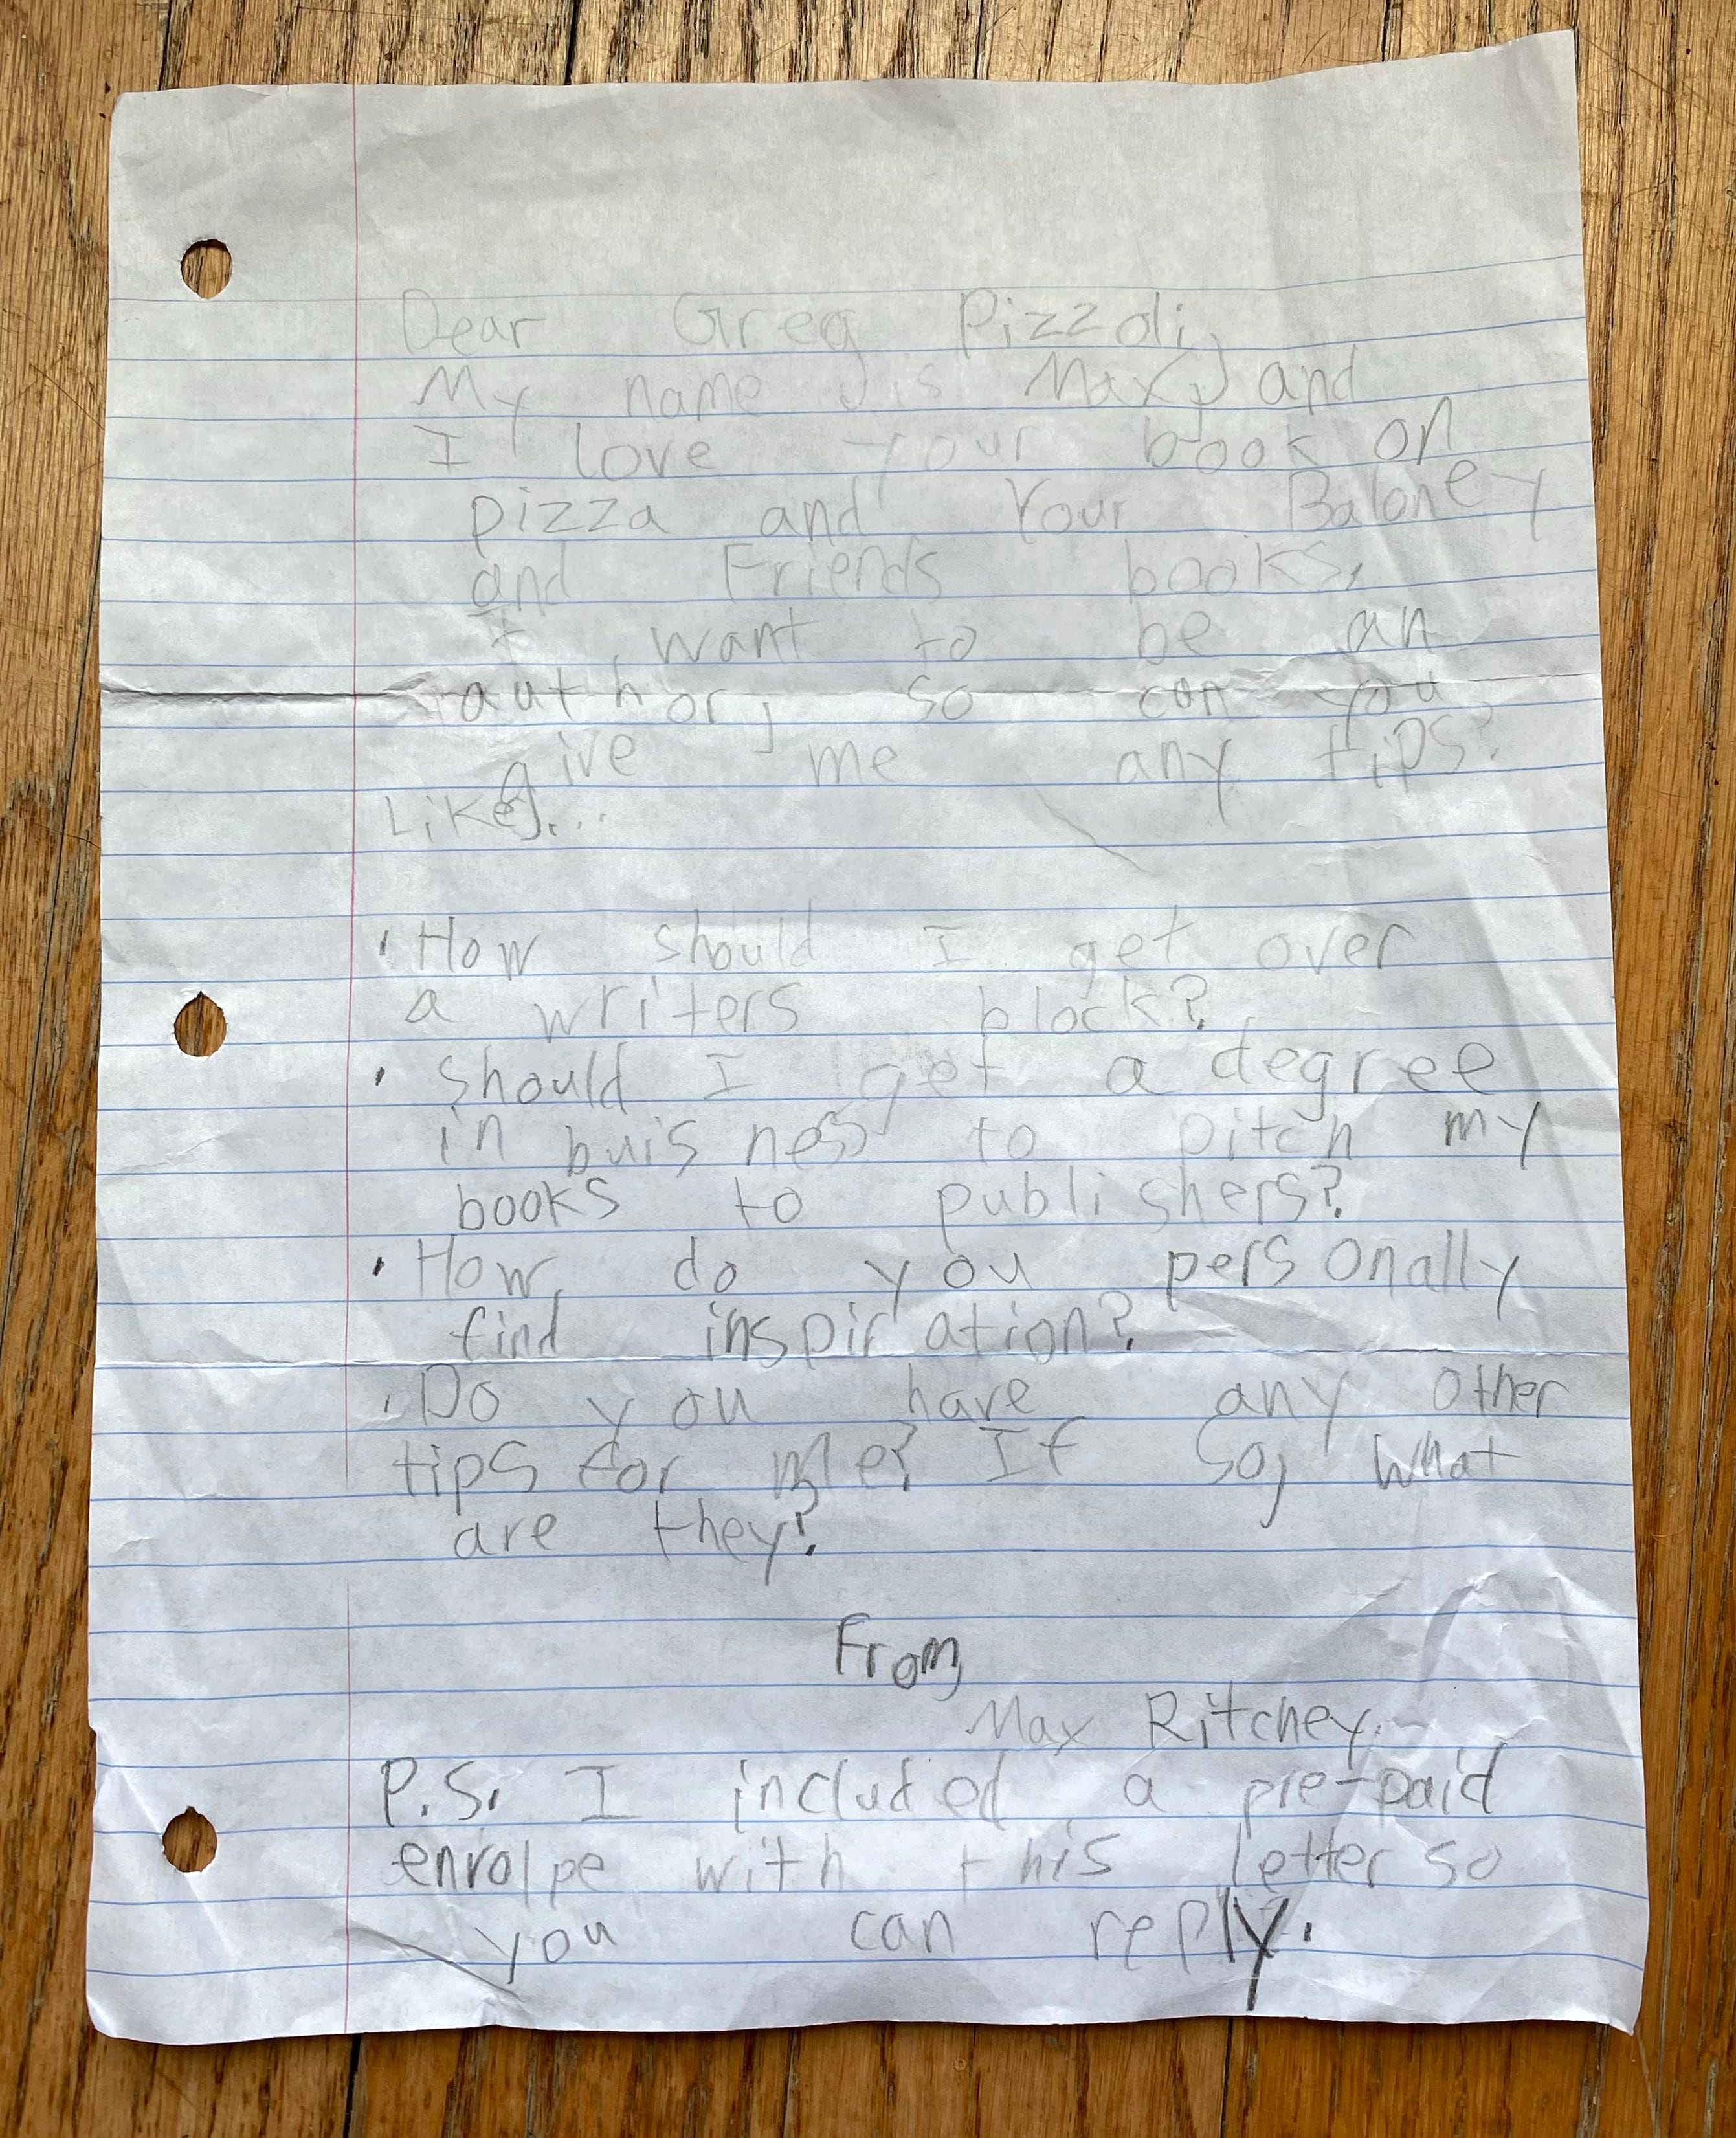 Dear Greg Pizzoli,
My name is Max, and
I love your book on
pizza and Your Baloney
and Friends books.
I want to be an
author, so can you
give me any tips?
Like...
· How should I get over
a writers block?
· Should I get a degree
in buisness to pitch my
books to publishers?
· How do you personally
find inspiration?
· Do you have any other
tips for me? If so, what
are they?
From,
Max Ritchey.
P.S. I included a pre-paid
envolpe with this letter so
you can reply.